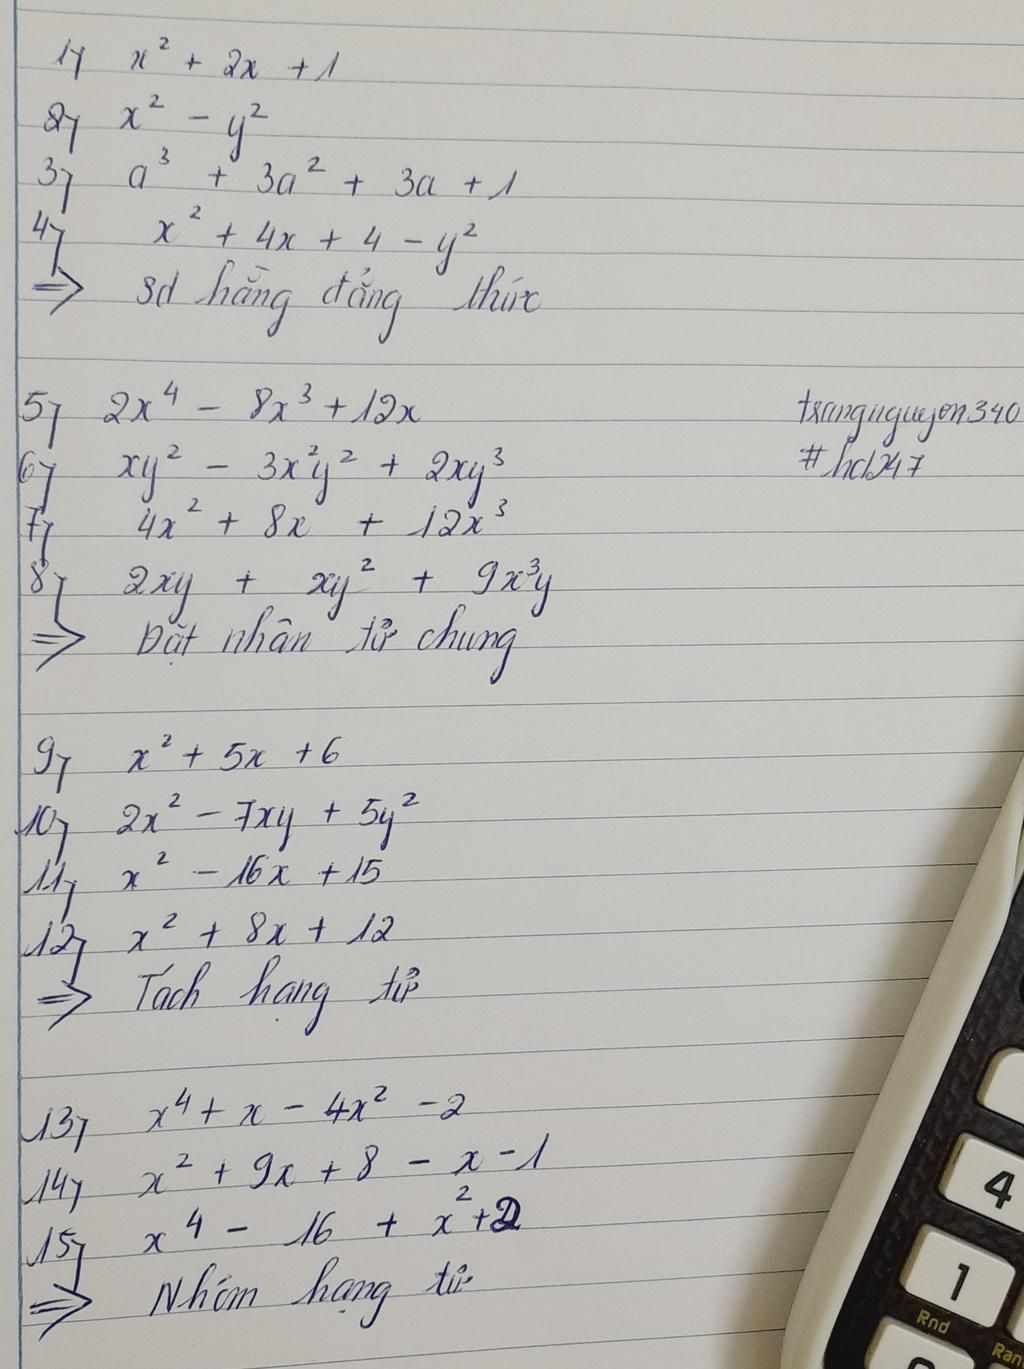 1) x² + 2x + 1
2) x² - y²
3) a³ + 3a² + 3a + 1
4) x² + 4x + 4 - y²
=> sd hằng đẳng thức
5) 2x⁴ - 8x³ + 12x
trangnguyen340
6) xy² - 3x²y² + 2xy³
#hd247
7) 4x² + 8x + 12x³
8) 2xy + xy² + 9x³y
=> Đặt nhân tử chung
9) x² + 5x + 6
10) 2x² - 7xy + 5y²
11) x² - 16x + 15
12) x² + 8x + 12
=> Tách hạng tử
13) x⁴ + x - 4x² - 2
14) x² + 9x + 8 - x - 1
15) x⁴ - 16 + x² + 2
=> Nhóm hạng tử
4
1
Rnd
Ran